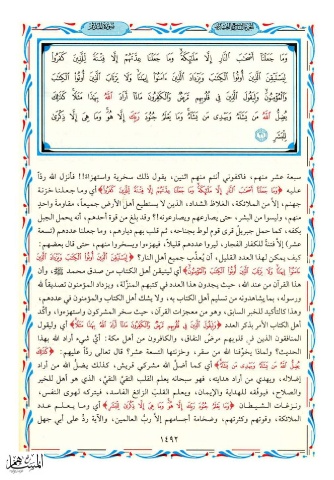 سورة المدثر
وَمَا جَعَلْنَا أَصْحَابَ النَّارِ إِلَّا مَلَائِكَةً وَمَا جَعَلْنَا عِدَّتَهُمْ إِلَّا فِتْنَةً لِلَّذِينَ كَفَرُوا
لِيَسْتَيْقِنَ الَّذِينَ أُوتُوا الْكِتَابَ وَيَزْدَادَ الَّذِينَ آمَنُوا إِيمَانًا وَلَا يَرْتَابَ الَّذِينَ أُوتُوا الْكِتَابَ
وَالْمُؤْمِنُونَ وَلِيَقُولَ الَّذِينَ فِي قُلُوبِهِم مَّرَضٌ وَالْكَافِرُونَ مَاذَا أَرَادَ اللَّهُ بِهَٰذَا مَثَلًا كَذَٰلِكَ
يُضِلُّ اللَّهُ مَن يَشَاءُ وَيَهْدِي مَن يَشَاءُ وَمَا يَعْلَمُ جُنُودَ رَبِّكَ إِلَّا هُوَ وَمَا هِيَ إِلَّا ذِكْرَىٰ
لِلْبَشَرِ
سبعة عشر منهم، فاكفوني أنتم منهم اثنين، يقول ذلك سخرية واستهزاءً!! فأنزل الله ردّاً
عليه ﴿وَمَا جَعَلْنَا أَصْحَابَ النَّارِ إِلَّا مَلَائِكَةً وَمَا جَعَلْنَا عِدَّتَهُمْ إِلَّا فِتْنَةً لِلَّذِينَ كَفَرُوا﴾ أي وما جعلنا خزنة
جهنم، إلَّا من الملائكة، الغلاظ الشداد، الذين لا يستطيع أهل الأرض جميعاً، مقاومة واحدٍ
منهم، وليسوا من البشر، حتى يصارعهم ويصارعونه!؟ وقد بلغ من قوة أحدهم، أنه يحمل الجبل
بكفه، كما حمل جبريل قرى قوم لوط بجناحه، ثم قلب بهم ديارهم، وما جعلنا عددهم (تسعة
عشر) إلَّا فتنةً للكفار الفجار، ليروا عددهم قليلاً، فيهزءوا ويسخروا منهم، حتى قال بعضهم:
كيف يمكن لهذا العدد القليل، أن يُعذِّب جميع أهل النار؟ ﴿لِيَسْتَيْقِنَ الَّذِينَ أُوتُوا الْكِتَابَ وَيَزْدَادَ الَّذِينَ
آمَنُوا إِيمَانًا وَلَا يَرْتَابَ الَّذِينَ أُوتُوا الْكِتَابَ وَالْمُؤْمِنُونَ﴾ أي ليتيقن أهل الكتاب من صدق محمد ﷺ، وأن
هذا القرآن من عند الله، حيث يجدون هذا العدد في كتبهم المنزَّلة، ويزداد المؤمنون تصديقاً لله
ورسوله، بما يشاهدونه من تسليم أهل الكتاب به، ولا يشك أهل الكتاب والمؤمنون في عددهم،
وهذا كالتأكيد للخبر السابق، وهو من معجزات القرآن، حيث سخر المشركون واستهزءوا، وأكَّد
أهل الكتاب الأمر بذكر العدد ﴿وَلِيَقُولَ الَّذِينَ فِي قُلُوبِهِم مَّرَضٌ وَالْكَافِرُونَ مَاذَا أَرَادَ اللَّهُ بِهَٰذَا مَثَلًا﴾ أي وليقول
المنافقون الذين في قلوبهم مرضُ النفاق، والكافرون من أهل مكة: أيُّ شيء أراد الله بهذا
الحديث؟ ولماذا يخوِّفنا الله من سقر، وخزنتها التسعة عشر؟ قال تعالى ردّاً عليهم: ﴿كَذَٰلِكَ
يُضِلُّ اللَّهُ مَن يَشَاءُ وَيَهْدِي مَن يَشَاءُ﴾ أي كما أضلَّ الله مشركي قريش، كذلك يضلُّ الله من أراد
إضلاله، ويهدي من أراد هدايته، فهو سبحانه يعلم القلب النقيَّ التقيَّ، الذي هو أهل للخير
والصلاح، فيوفِّقه للهداية والإيمان، ويعلم القلبَ الزائغ الفاسد، فيتركه لهوى النفس،
ونزغات الشيطان ﴿وَمَا يَعْلَمُ جُنُودَ رَبِّكَ إِلَّا هُوَ وَمَا هِيَ إِلَّا ذِكْرَىٰ لِلْبَشَرِ﴾ أي وما يعلم عدد
الملائكة، وقوتهم وكثرتهم، وضخامة أجسامهم إلَّا ربُّ العالمين، والآية ردٌّ على أبي جهل
١٤٩٢